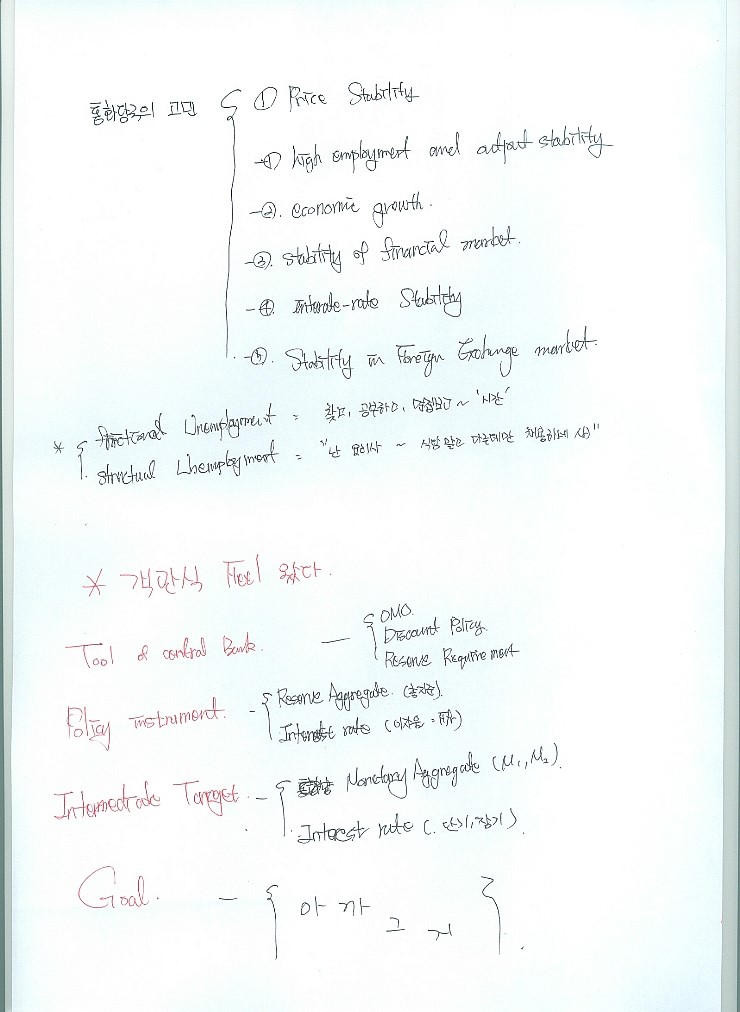 통화당국의 고민 { ① Price Stability
-① high employment and output stability
-②. economic growth.
-③. stability of financial market.
-④. interate-rate Stability
-⑤. Stability in Foreign Exchange market.
* { frictional Unemployment = 찾고, 공부하고, 면접보고 ~ '시간'
structual Unemployment = "난 요리사 ~ 식당 말고 다른데만 채용하네 시ㅂ"
* 객관식 Feel 왔다.
Tool of central Bank. — { OMO.
Discount Policy.
Reserve Requirement
Policy instrument. - { Reserve Aggregate. (총지준).
Interest rate (이자율 = FFR)
Intermediate Target. - { Monetary Aggregate (M1, M2).
Interest rate (. 단기, 장기).
Goal. — { 아까 그거 }.